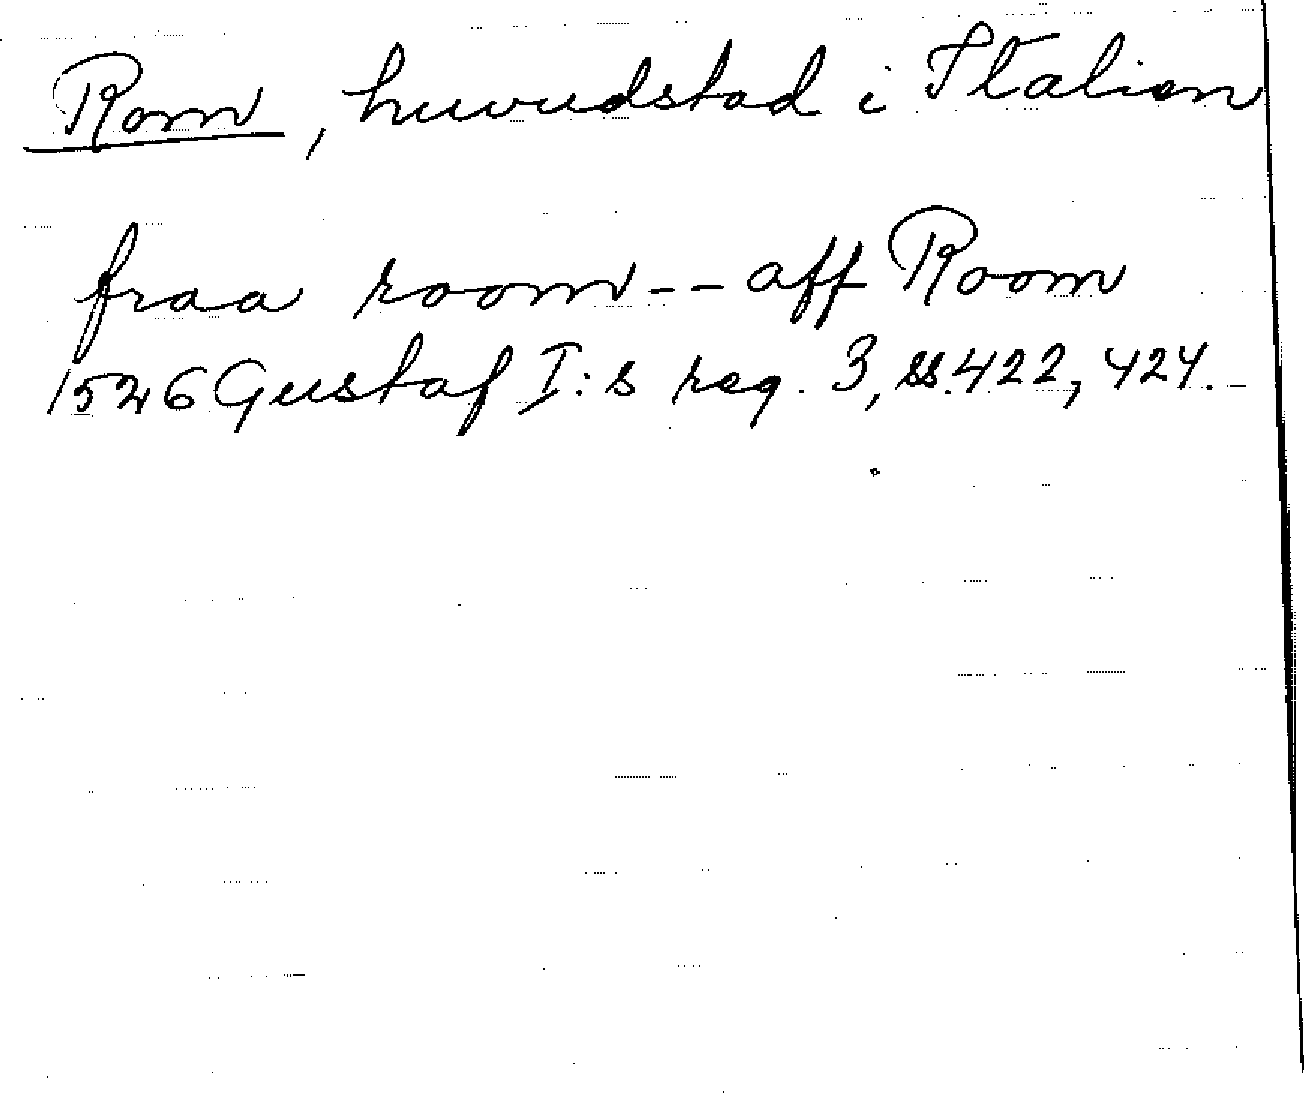 Rom, huvudstad i Italien
fraa room -- aff Room
1526 Gustaf I:s reg. 3, ss. 422, 424.